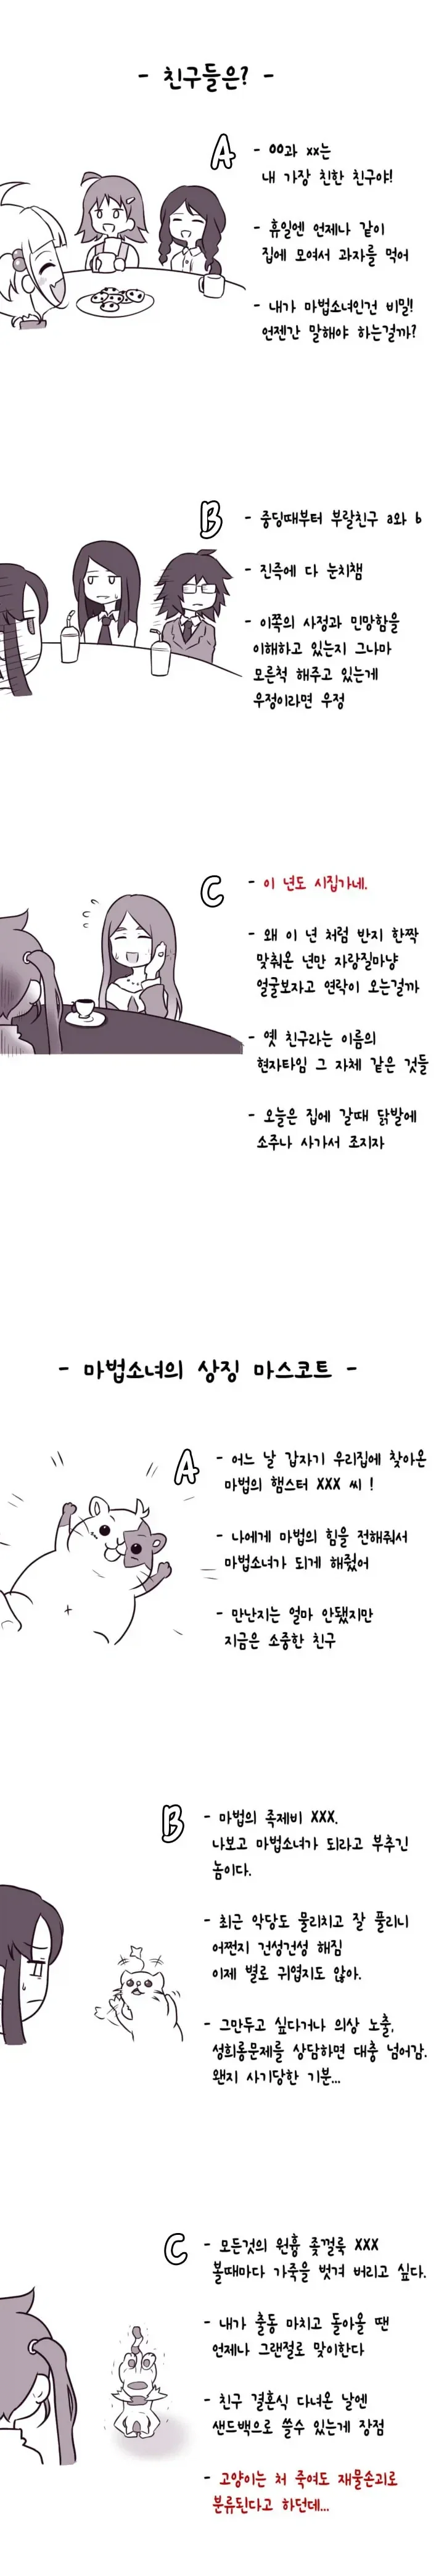 - 친구들은? -
A
- OO과 xx는
내 가장 친한 친구야!
- 휴일엔 언제나 같이
집에 모여서 과자를 먹어
- 내가 마법소녀인건 비밀!
언젠간 말해야 하는걸까?
B
- 중딩때부터 부랄친구 a와 b
- 진즉에 다 눈치챔
- 이쪽의 사정과 민망함을
이해하고 있는지 그나마
모른척 해주고 있는게
우정이라면 우정
C
- 이 년도 시집가네.
- 왜 이 년 처럼 반지 한짝
맞춰온 년만 자랑질마냥
얼굴보자고 연락이 오는걸까
- 옛 친구라는 이름의
현자타임 그 자체 같은 것들
- 오늘은 집에 갈때 닭발에
소주나 사가서 조지자
- 마법소녀의 상징 마스코트 -
A
- 어느 날 갑자기 우리집에 찾아온
마법의 햄스터 XXX 씨 !
- 나에게 마법의 힘을 전해줘서
마법소녀가 되게 해줬어
- 만난지는 얼마 안됐지만
지금은 소중한 친구
B
- 마법의 족제비 XXX.
나보고 마법소녀가 되라고 부추긴
놈이다.
- 최근 악당도 물리치고 잘 풀리니
어쩐지 건성건성 해짐
이제 별로 귀엽지도 않아.
- 그만두고 싶다거나 의상 노출,
성희롱문제를 상담하면 대충 넘어감.
왠지 사기당한 기분...
C
- 모든것의 원흉 좆껄룩 XXX
볼때마다 가죽을 벗겨 버리고 싶다.
- 내가 출동 마치고 돌아올 땐
언제나 그랜절로 맞이한다
- 친구 결혼식 다녀온 날엔
샌드백으로 쓸수 있는게 장점
- 고양이는 처 죽여도 재물손괴로
분류된다고 하던데...